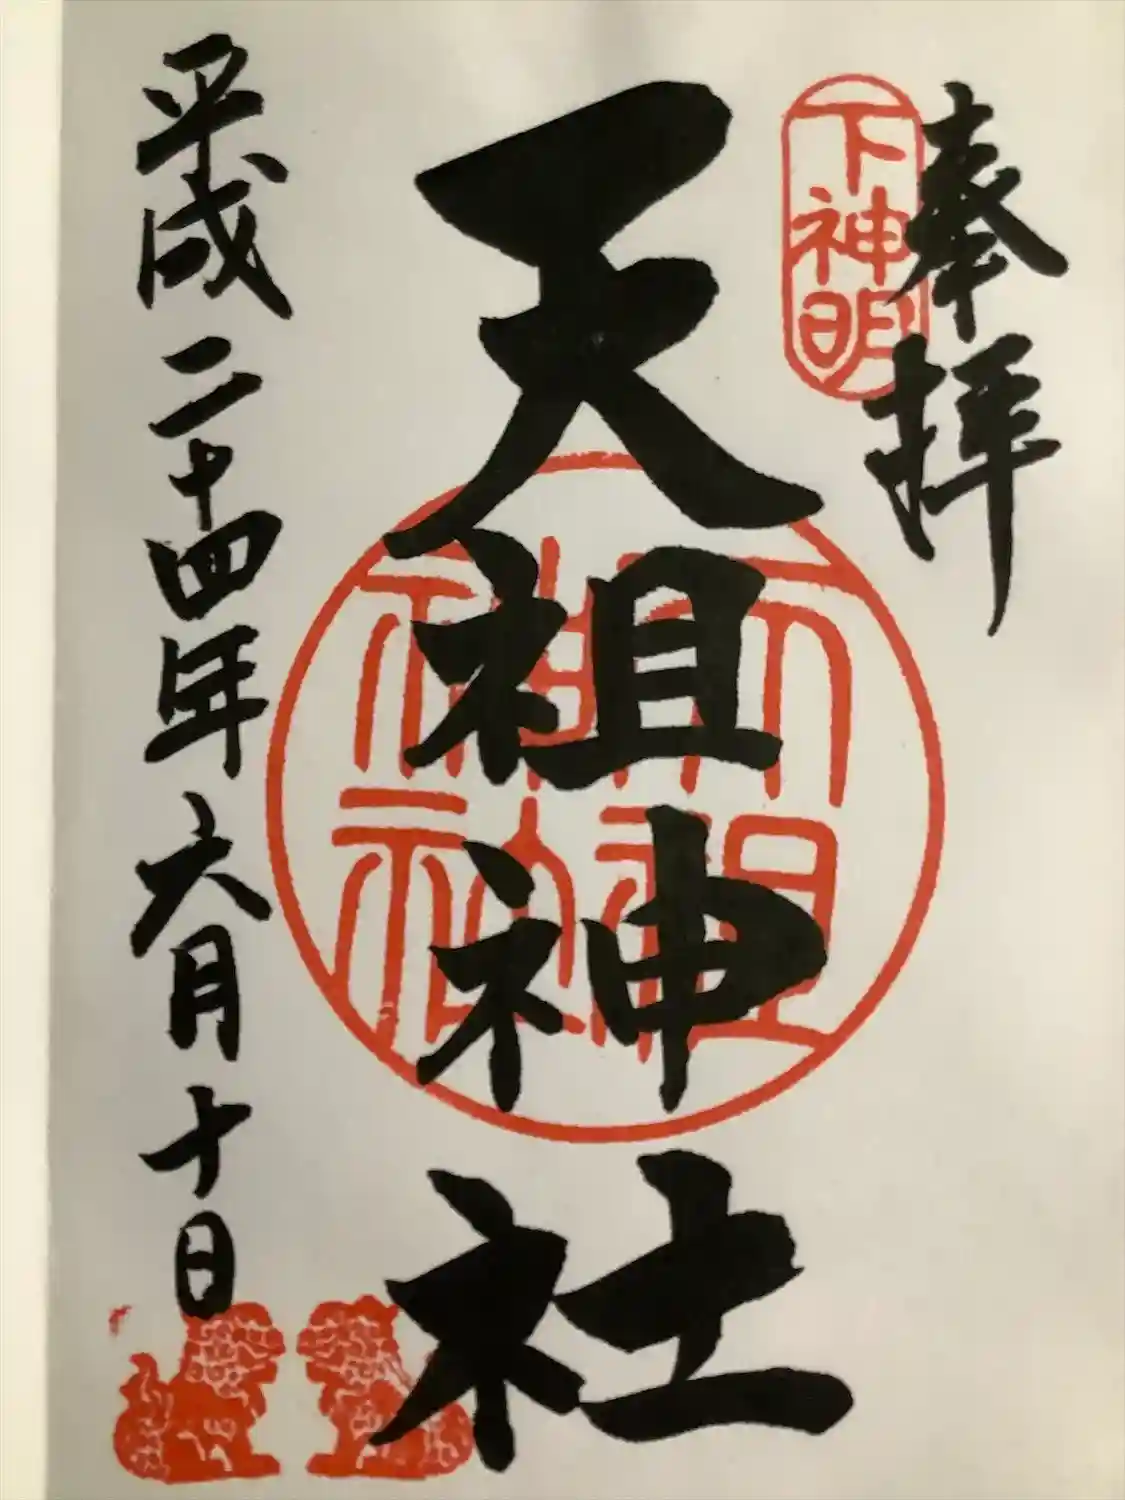 奉拝
下神明
天祖神社
天祖
神社
平成二十四年六月十日